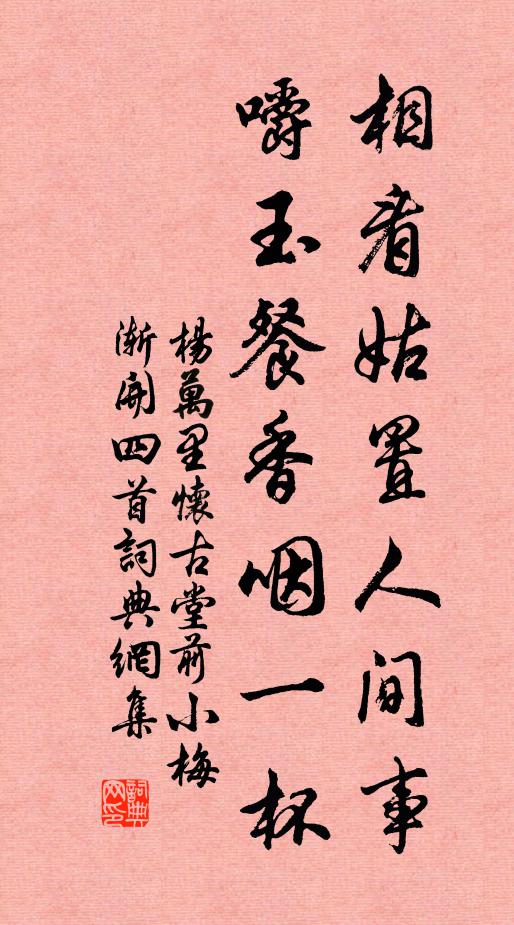 相看姑置人間事
嚼玉餐香咽一杯
楊萬里懷古堂前小梅
漸開四首詞典網集
詞典
网印